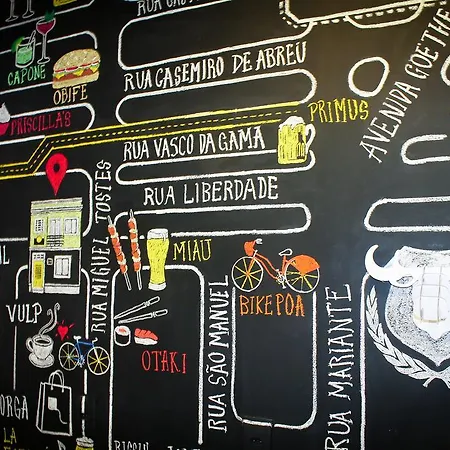 CAPONE
OBIFE
PRISCILLA'S
RUA CASEMIRO DE ABREU
PRIMUS
AVENIDA GOETHE
RUA VASCO DA GAMA
RUA LIBERDADE
RUA MIGUEL TOSTES
MIAU
BIKE POA
VULP
OTAKI
RUA SÃO MANUEL
RUA MARIANTE
ORGA
LA